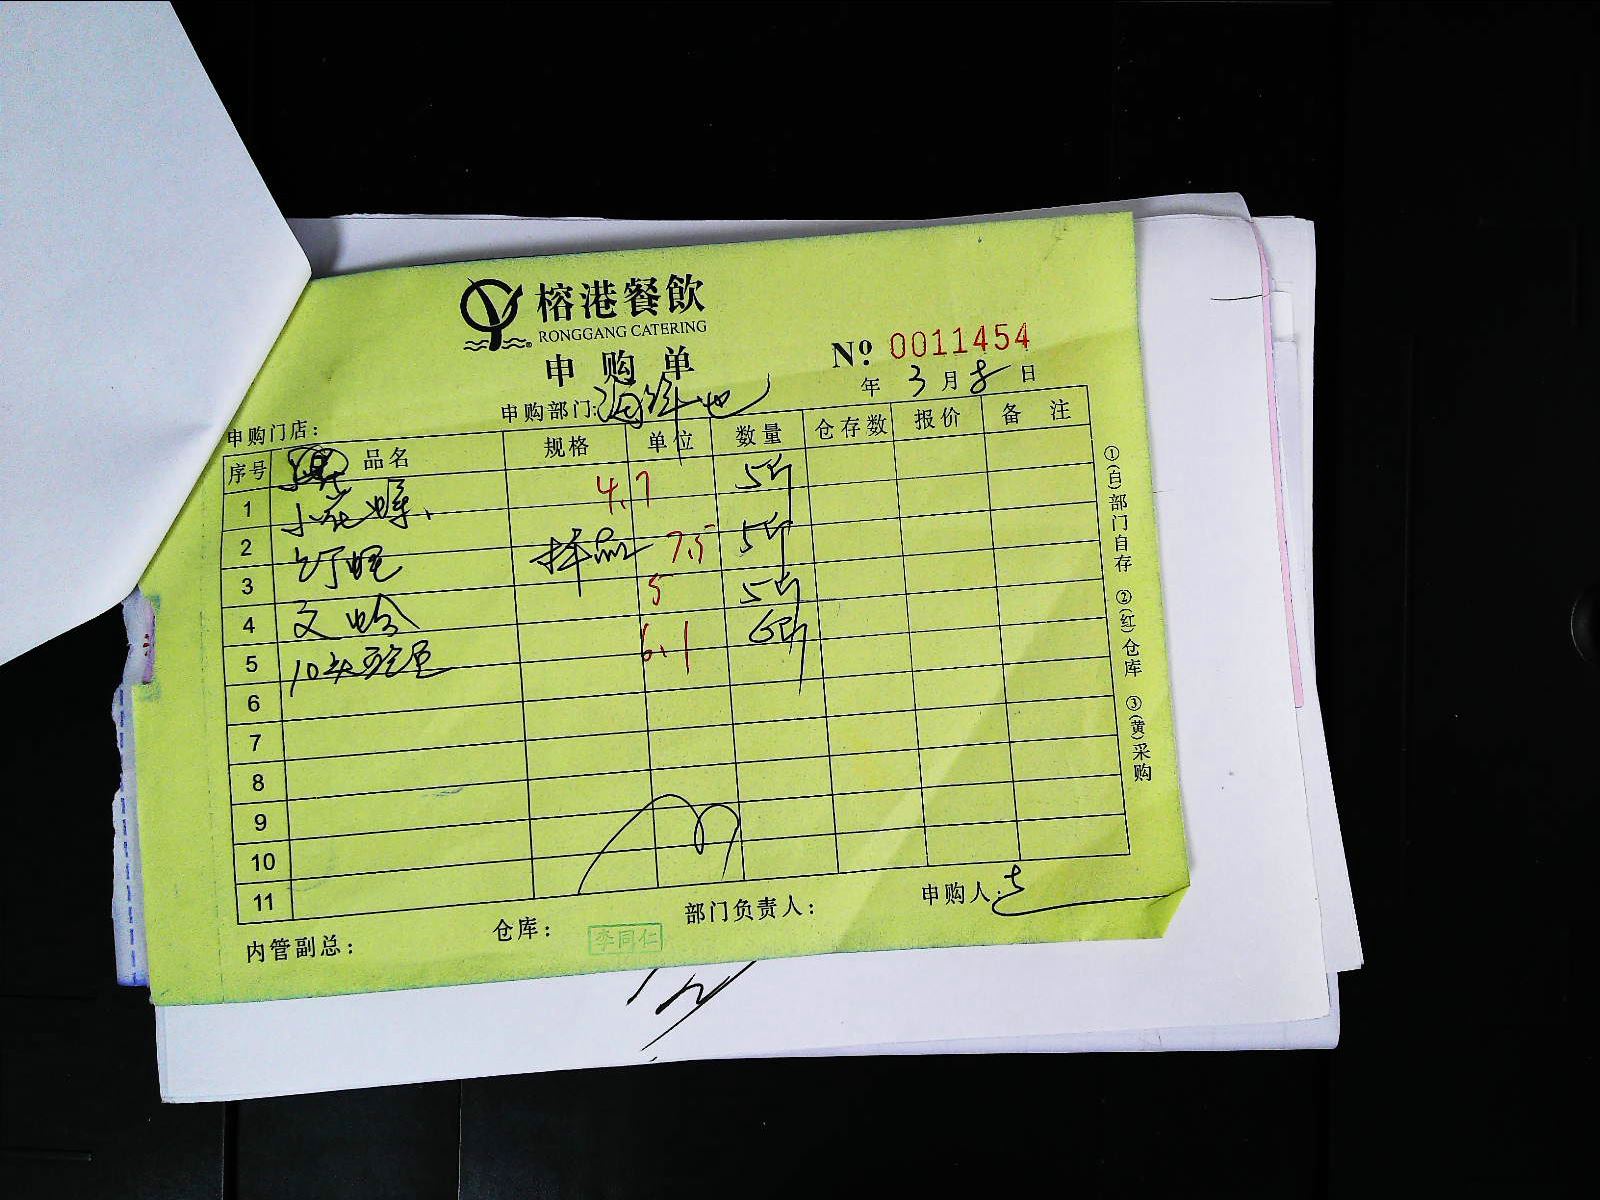 榕港餐飲
RONGGANG CATERING
申购单
№ 0011454
年 3 月 8 日
申购门店： 申购部门：海鲜池
序号 品名 规格 单位 数量 仓存数 报价 备注
1 小花螺 4.7 5斤
2 钉螺 样品 7.5 5斤
3 文蛤 5 5斤
4 10头鲍 6.1 6斤
5
6
7
8
9
10
11
内管副总： 仓库： 李同仁 部门负责人： 申购人：
①(白)部门自存 ②(红)仓库 ③(黄)采购